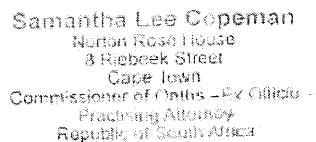 Samantha Lee Copeman
Norton Rose House
8 Riebeek Street
Cape Town
Commissioner of Oaths – Ex Officio
Practising Attorney
Republic of South Africa